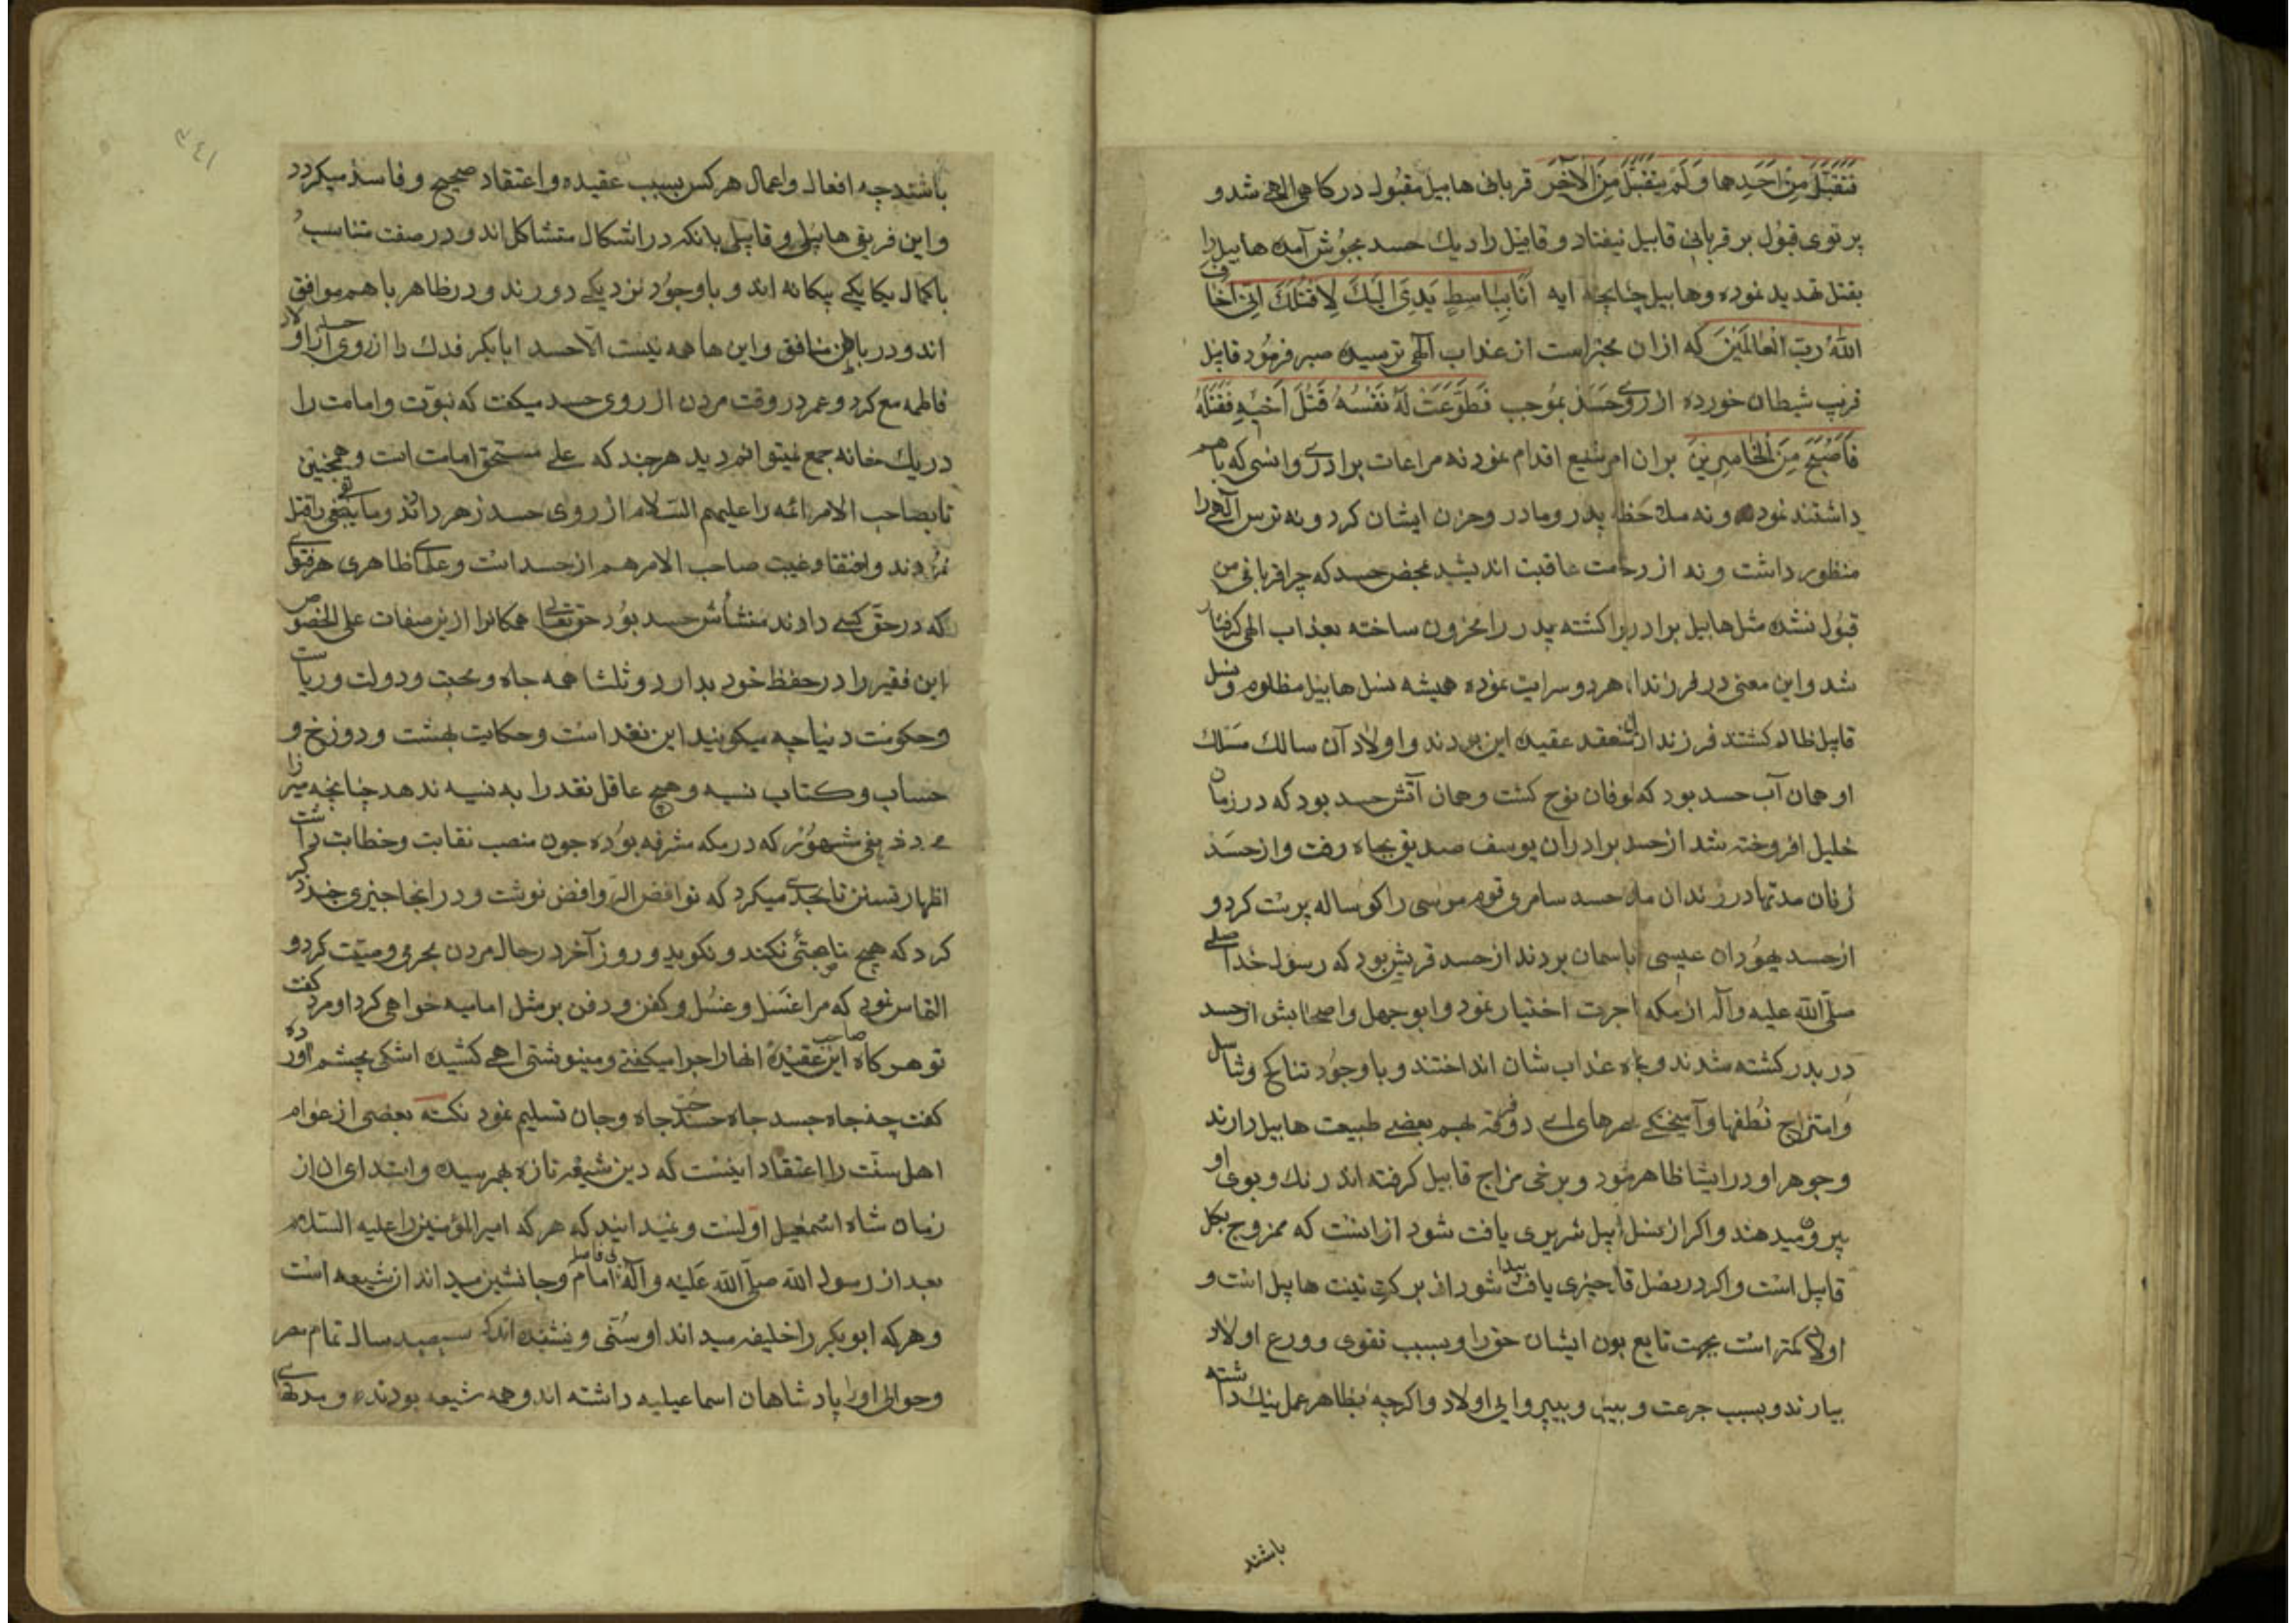 فَتُقُبِّلَ مِنْ اَحَدِهِما وَلَمْ يُتَقَبَّلْ مِنَ الْآخَرِ قربانی هابیل مقبول درکاهی الهی شد و
پرتوی قبول بر قربانی قابیل نیفتاد و قابیل را دیك حسد بجوش آمده هابیل را
بقتل تهدید نموده وهابیل چنانچه آیه اَنَا بِبَاسِطٍ يَدِیَ اِلَيْكَ لِاَقْتُلَكَ اِنّی اَخافُ
اللّٰهَ رَبَّ الْعَالَمِينَ که ازان مخبر است از عذاب الهی ترسیده صبر فرمود قابیل
فریب شیطان خورده از روی حسد بموجب فَطَوَّعَتْ لَهُ نَفْسُهُ قَتْلَ اَخِيهِ فَقَتَلَهُ
فَاَصْبَحَ مِنَ الْخَاسِرِينَ بران امر شنیع اقدام نمود نه مراعات برادری وانسی که باهم
داشتند نمود و نه ملاحظه پدر ومادر وحزن ایشان کرد و نه ترس آلهی را
منظور داشت و نه از وخامت عاقبت اندیشید محض حسد که چرا قربانی من
قبول نشده مثل هابیل برادریرا کشته پدر را محزون ساخته بعذاب الهی کرفتار
شد واین معنی در فرزندان هردو سرایت نموده همیشه نسل هابیل مظلوم ونسل
قابیل ظالم کشتند فرزندان معتقد عقیده این بودند و اولاد آن سالك مسلك
او همان آب حسد بود که طوفان نوح کشت وهمان آتش حسد بود که در زمان
خلیل افروخته شد از حسد برادران یوسف صدیق بچاه رفت و از حسد
زنان مدتها در زندان ماند حسد سامری قوم موسی را کوساله پرست کرد و
از حسد یهودان عیسی باسمان بردند از حسد قریش بود که رسول خدا صلی
صلّی اللّه علیه وآله از مکه اجرت اختیار نمود وابوجهل واصحابش از حسد
در بدر کشته شدند و بچاه عذاب شان انداختند و با وجود تناکح وتناسل
وامتزاج نطفها وآمیختکی دو فرقه بهم بعضی طبیعت هابیل دارند
وجوهر او در ایشا ظاهر نمود و برخی مزاج قابیل کرفته اند رنك وبوی او
بیرون میدهند واکر از نسل ابیل شریری یافت شود از انست که ممزوج بکل
قابیل است واکر در نسل قا خیری یافت پیدا شود از برکت نیت هابیل است و
اولاد کمتر است بجهت تابع بودن ایشان حق را وبسبب تقوی وورع اولاد
بیارند و بسبب جرعت و وبیپروایی اولاد واکرچه بظاهر عمل نیك داشته
باشند
۲۴۱
باشند چه افعال واعمال هرکس بسبب عقیده واعتقاد صحیح وفاسد میکردد
واین فریق هابیلی و قابیلی بانکه در اشکال متشاکل اند و در صفت متناسب
باکمال یکایکی بیکانه اند و باوجود نزدیکی دورند و در ظاهر باهم موافق
اند و در باطن منافق واین ها همه نیست الّا حسد ابابکر فدك را از روی حسد از اولاد
فاطمه منع کرد وعمر در وقت مردن از روی حسد میکفت که نبوّت وامامت را
در یك خانه جمع نمیتوانم دید هرچند که علی مستحق امامت است وهمچنین
تا بصاحب الامر ائمه را علیهم السّلام از روی حسد زهر دادند وما بقی را قتل
نمودند واختفا وغیبت صاحب الامر هم از حسد است وعداوت ظاهری هرفرقه
که در حق کسی دارند منشأش حسد بود حق تعالی همکانرا ازین صفات علی الخصوص
این فقیر را در حفظ خود بدارد و ثلثا همه جاه ومحبت ودولت وریاست
وحکومت دنیا چه میکویند این نقد است وحکایت بهشت ودوزخ و
حساب وکتاب نسیه وهیچ عاقل نقد را به نسیه ندهد چنانچه میرزا
مخدوم شریفی مشهور که در مکه مشرفه بوده چون منصب نقابت وخطابت داشت
اظهار تسنن تا بحدی میکرد که نواقض الروافض نوشت و در انجا چیزی چند ذکر
کرد که هیچ ناصبئی نکند و نکوید و روز آخر در حال مردن بحرمی وصیّت کرد و
التماس نمود که مرا غَسْل وغُسْل وکفن ودفن بر مثل امامیه خواهی کرد او مرد کفت
تو هرکاه صاحب این عقیدهٔ انها را چرا میکفتی ومینوشتی اهی کشیده اشکی بچشم آورده
کفت چه جاه حسد جاه حسد حبّ جاه وجان تسلیم نمود نکته بعضی از عوام
اهل سنّت را اعتقاد اینست که دین شیعه تازه بهم رسیده وابتدای ان از
زمان شاه اسمعیل اولست ونمیدانند که هرکه امیرالمؤمنین را علیه السّلام
بعد از رسول اللّه صلّی اللّه علیه وآله بی فاصله امام وجانشین میداند از شیعه است
وهرکه ابوبکر را خلیفه میداند او سُنّی ونشنیده اند که سیصد سال تمام مصر
وحوالی اورا پادشاهان اسماعیلیه داشته اند وهمه شیعه بودند و مدتهای